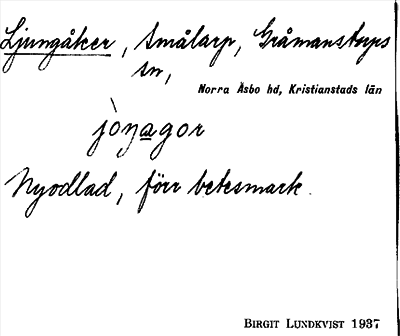 Ljungåker, Smålarp, Gråmanstorps
sn,
Norra Åsbo hd, Kristianstads län
jòŋagor
Nyodlad, förr betesmark.
BIRGIT LUNDKVIST 1937